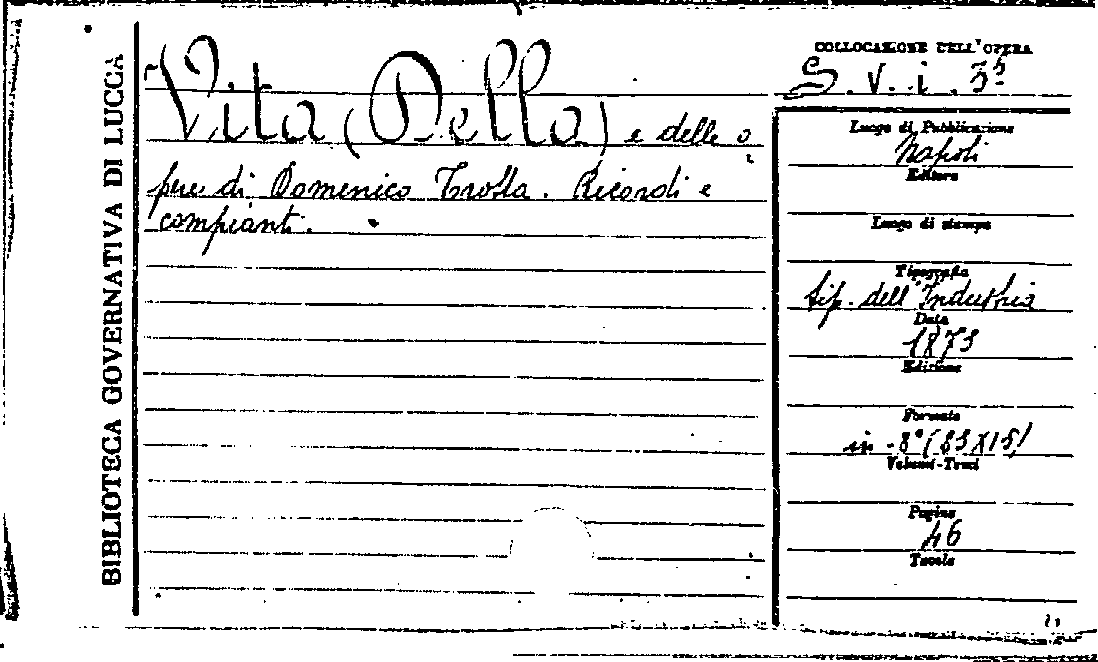 BIBLIOTECA GOVERNATIVA DI LUCCA
Vita (Della) e delle o
pere di Domenico Trotta. Ricordi e
compianti.
COLLOCAZIONE DELL'OPERA
S. V. i. 35
Luogo di Pubblicazione
Napoli
Editore
Luogo di stampa
Tipografia
tip. dell'Industria
Data
1873
Edizione
Formato
in-8° (23X15)
Volumi-Tomi
Pagine
46
Tavole